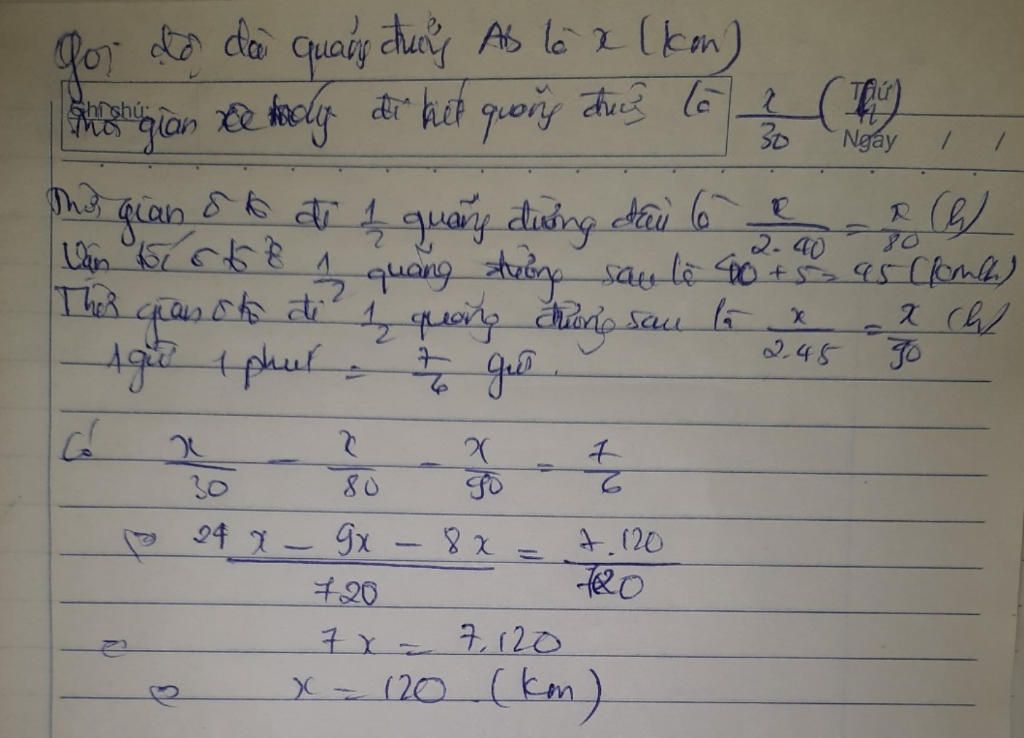 Gọi độ dài quãng đường AB là x (km)
Ghi chú:
Thời gian xe máy đi hết quãng đường là x/30 (h)
Thứ
Ngày / /
Thời gian ô tô đi 1/2 quãng đường đầu là x/2.40 = x/80 (h)
Vận tốc ô tô ở 1/2 quãng đường sau là 40 + 5 = 45 (km/h)
Thời gian ô tô đi 1/2 quãng đường sau là x/2.45 = x/90 (h)
1 giờ 1 phút = 7/6 giờ.
Có x/30 - x/80 - x/90 = 7/6
⇔ 24x - 9x - 8x / 720 = 7.120/720
⇔ 7x = 7.120
⇔ x = 120 (km)